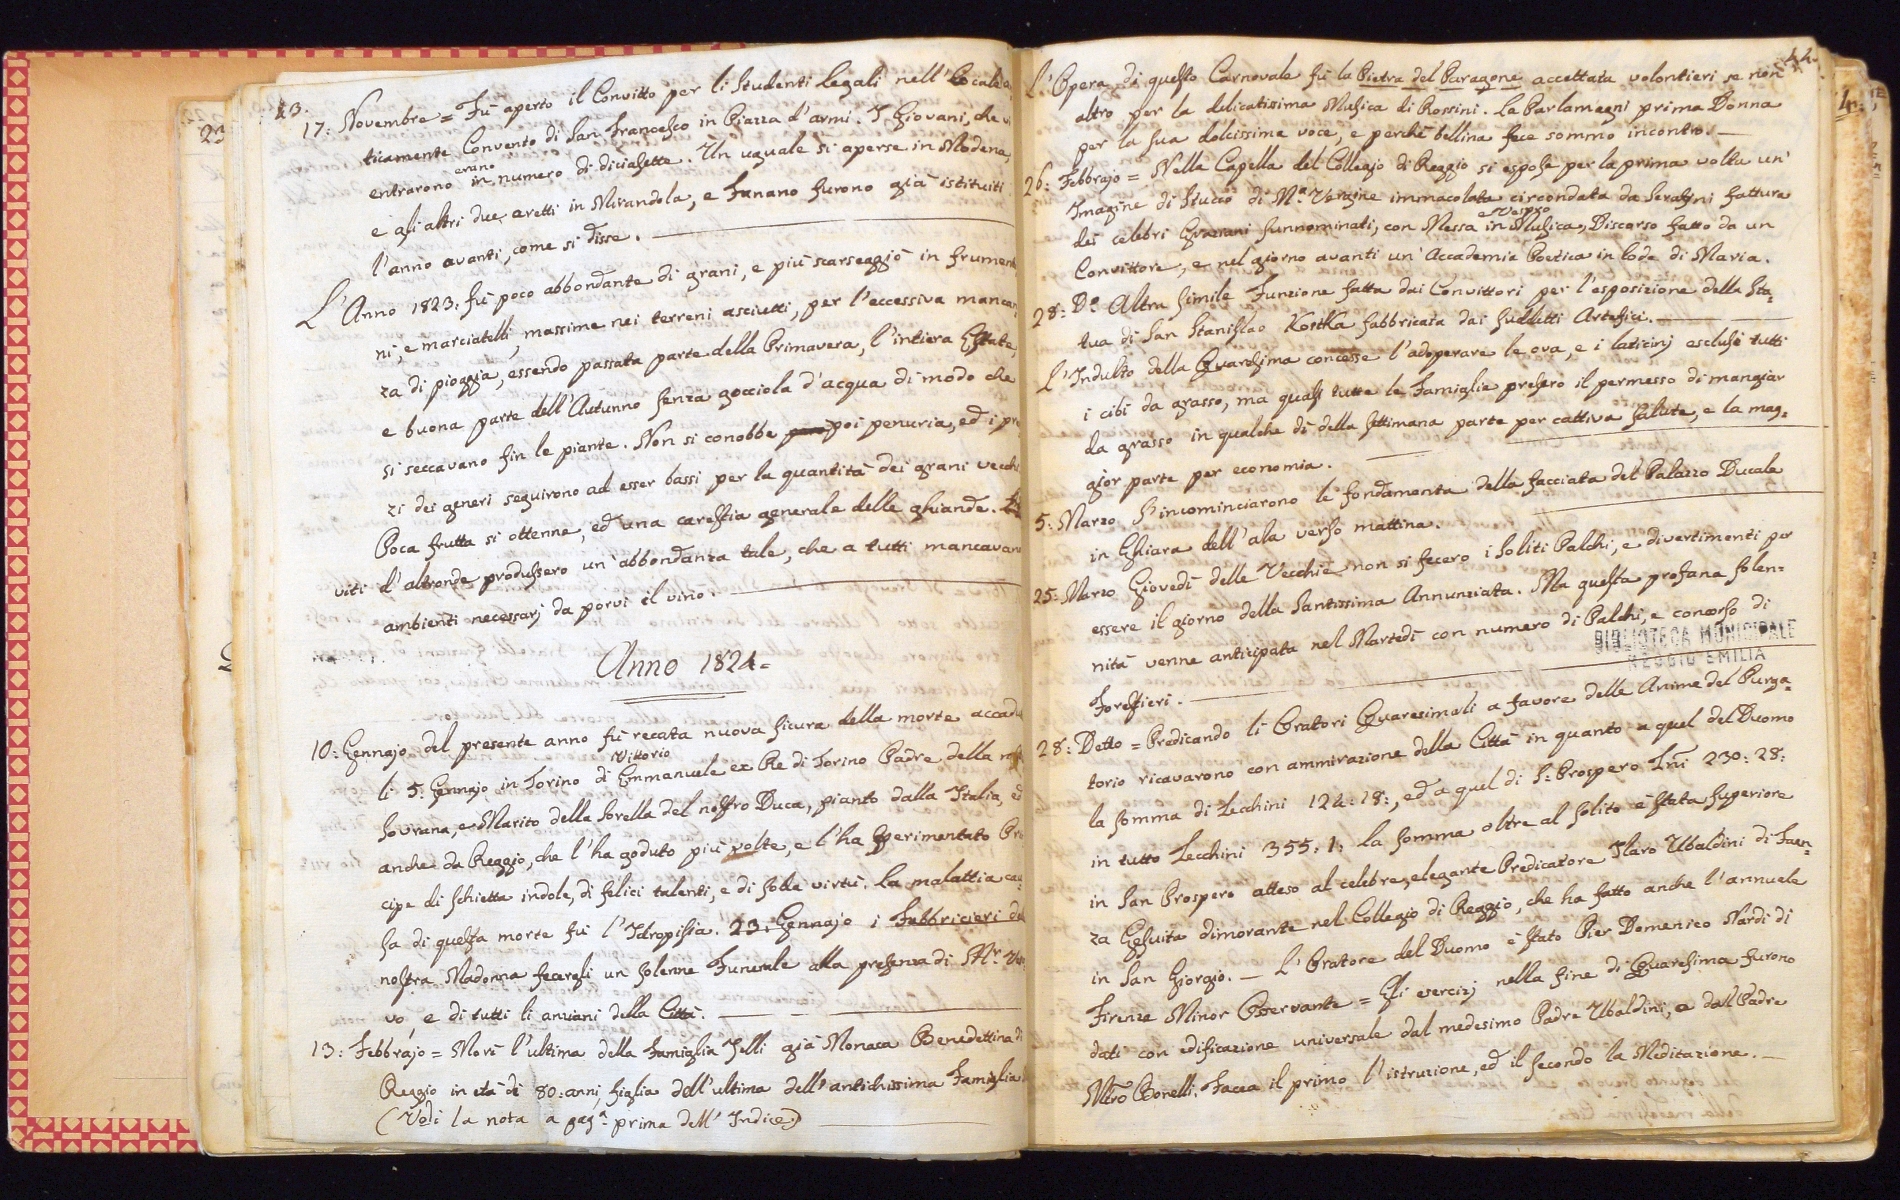 43.
17: Novembre = Fù aperto il Convitto per li Studenti Legali nell' Locale
ticamente Convento di San Francesco in Piazza d'armi. I Giovani, che vi
entrarono erano in numero di diciasette. Un uguale si aperse in Modena,
e gli altri due eretti in Mirandola, e Fanano furono già istituiti
l'anno avanti, come si disse.
L'Anno 1823: fù poco abbondante di grani, e più scarseggiò in frumenti
ni, e marciatelli, massime nei terreni asciutti, per l'eccessiva mancan
za di pioggia, essendo passata parte della Primavera, l'intiera Estate,
e buona parte dell'Autunno senza gocciola d'acqua di modo che
si seccavano fin le piante. Non si conobbe poi penuria, ed i pre
zi dei generi seguirono ad esser bassi per la quantità dei grani vecchi
Poca frutta si ottenne, ed una carestia generale delle ghiande.
viti d'altronde produssero un'abbondanza tale, che a tutti mancavano
ambienti necessarj da porvi il vino.
Anno 1824=
10: Gennajo del presente anno fù recata nuova sicura della morte accadu
li 5: Gennajo in Torino di Vittorio Emmanuele ex Re di Torino Padre della nostra
Sovrana, e Marito della Sorella del nostro Duca, pianto dalla Italia, ed
anche da Reggio, che l'ha goduto più volte, e l'ha sperimentato Prin
cipe di schietta indole, di felici talenti, e di soda virtù. La malattia cau
sa di questa morte fù l'Idropisia. 23: Gennajo i Fabbricieri della
nostra Madonna fecergli un solenne Funerale alla presenza di Mr. Vesco
vo, e di tutti li anziani della Città.
13: Febbrajo = Morì l'ultima della Famiglia Jelli già Monaca Benedettina di
Reggio in età di 80: anni, figlia dell'ultima dell'antichissima Famiglia
(Vedi la nota a pag.a prima dell'Indice)
44.
L'Opera di questo Carnovale fù la Pietra del Paragone accettata volontieri se non
altro per la delicatissima Musica di Rossini. La Parlamagni prima Donna
per la sua dolcissima voce, e perchè bellina fece sommo incontro.
26: Febbrajo = Nella Capella del Collegio di Reggio si espose per la prima volta un'
Imagine di Stucco di M.a Vergine immacolata circondata da Serafini fattura
dei celebri sunnominati, con Messa e Vespro in Musica, Discorso fatto da un
Convittore, e nel giorno avanti un'Accademia Poetica in lode di Maria.
28: D.o Altra simile Funzione fatta dai Convittori per l'esposizione della Sta=
tua di San Stanislao Kostka fabbricata dai suddetti Artefici.
L'Indulto della Quaresima concesse l'adoperare le ova, e i laticinj esclusi tutti
i cibi da grasso, ma quasi tutte le Famiglie presero il permesso di mangiar
da grasso in qualche dì della settimana parte per cattiva salute, e la mag=
gior parte per economia.
5: Marzo S'incominciarono le fondamenta della facciata del Palazzo Ducale
in Ghiara dell'ala verso mattina.
25: Marzo Giovedì delle Vecchie non si fecero i soliti Palchi, e divertimenti per
essere il giorno della Santissima Annunziata. Ma questa profana solen=
nità venne anticipata nel Martedì con numero di Palchi, e concorso di
Forestieri.
BIBLIOTECA MUNICIPALE
REGGIO EMILIA
28: Detto = Predicando li Oratori Quaresimali a favore delle Anime del Purga=
torio ricavarono con ammirazione della Città in quanto a quel del Duomo
la somma di Zecchini 124:18:, ed a quel di S: Prospero 230:28:
in tutto Zecchini 355:1: la somma oltre al solito è stata superiore
in San Prospero atteso al celebre, elegante Predicatore Ilaro Ubaldini di Faen=
za Gesuita dimorante nel Collegio di Reggio, che ha fatto anche l'annuale
in San Giorgio. — L'Oratore del Duomo è stato Pier Domenico Nardi di
Firenze Minor Osservante = Gli esercizj nella fine di Quaresima furono
dati con edificazione universale dal medesimo Padre Ubaldini, e dal Padre
Mtro Bonelli. Facea il primo l'istruzione, ed il secondo la Meditazione.